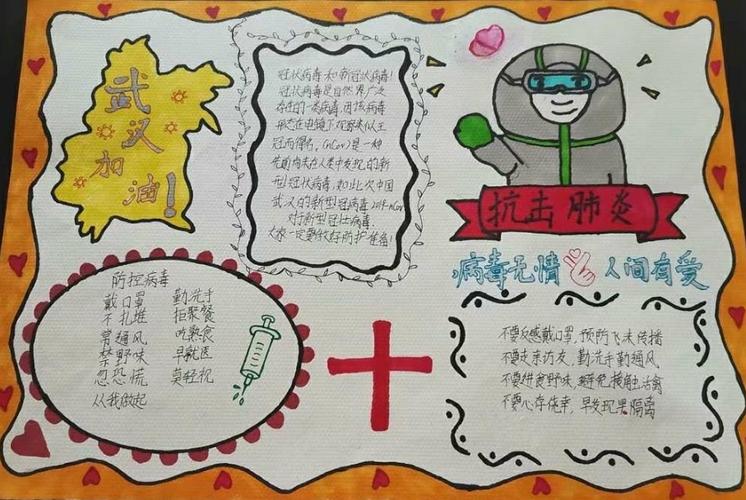 武汉
加油!
冠状病毒和新冠状病毒!
冠状病毒是自然界广泛
存在的一类病毒,因该病毒
形态在电镜下观察类似王
冠而得名, (nCov)是一种
先前尚未在人类中发现的新
型冠状病毒,如此次中国
武汉的新型冠状病毒2019-nCov
对于新型冠状病毒,
大家一定要做好防护准备!
抗击肺炎
病毒无情 人间有爱
防控病毒
戴口罩 勤洗手
不扎堆 拒聚餐
常通风 吃熟食
禁野味 早就医
忽恐慌 莫轻视
从我做起
不要反感戴口罩,预防飞沫传播
不要走亲访友,勤洗手勤通风
不要进食野味,避免接触活禽
不要心存侥幸,早发现早隔离